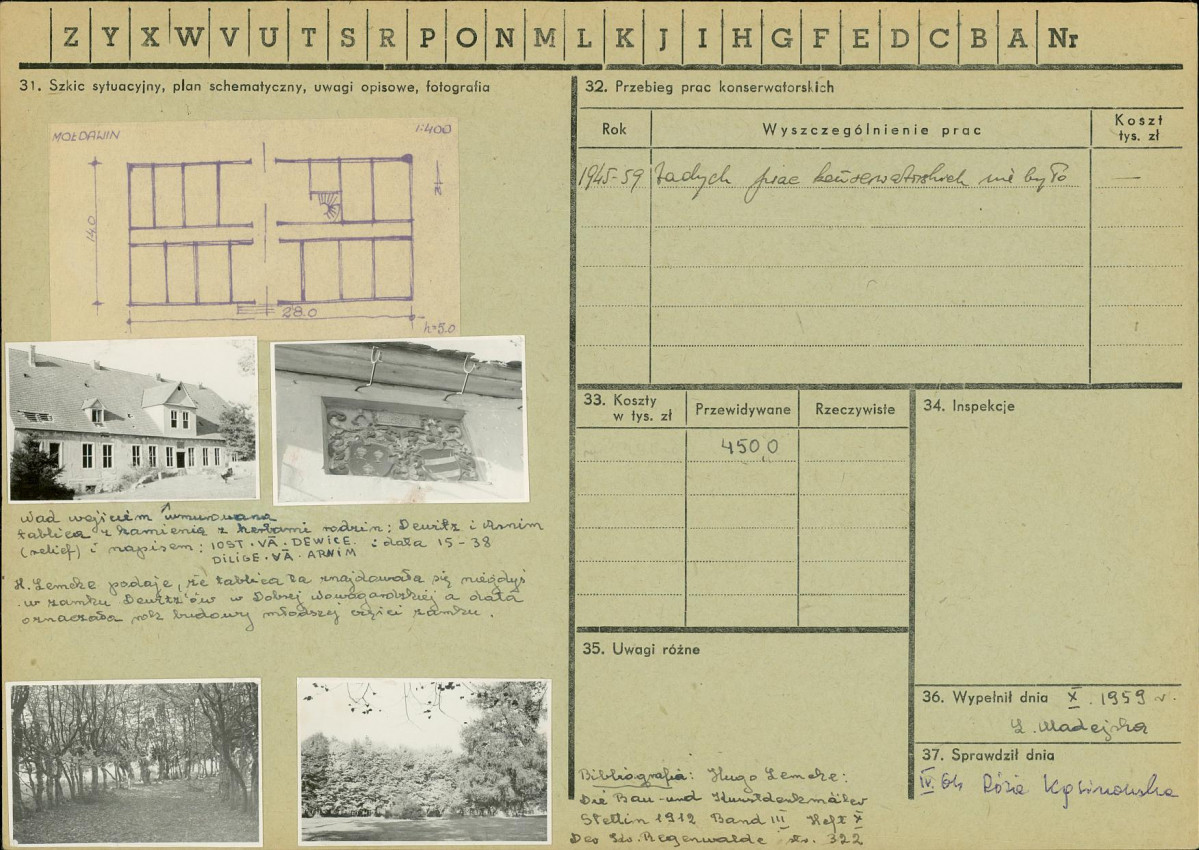 Z Y X W V U T S R P O N M L K J I H G F E D C B A Nr
31. Szkic sytuacyjny, plan schematyczny, uwagi opisowe, fotografia
MOŁDAWIN 1:400
14.0
28.0
h=5.0
Nad wejściem wmurowana
tablica z kamienia z herbami rodzin: Dewitz i Arnim
(relief) i napisem: IOST·VĀ·DEWICE. i data 15-38
DILIGE·VĀ·ARNIM
H. Lemcke podaje, że tablica ta znajdowała się niegdyś
w zamku Dewitz'ów w Dobrej Nowogardzkiej a data
oznaczała rok budowy młodszej części zamku.
32. Przebieg prac konserwatorskich
Rok Wyszczególnienie prac Koszt tys. zł
1945-59 Żadnych prac konserwatorskich nie było —
33. Koszty w tys. zł Przewidywane Rzeczywiste
450,0
34. Inspekcje
35. Uwagi różne
Bibliografia: Hugo Lemcke:
Die Bau- und Kunstdenkmäler
Stettin 1912 Band III Heft X
Der Krs. Regenwalde str. 322
36. Wypełnił dnia X. 1959 r.
L. Madejska
37. Sprawdził dnia
IV Róża Kąsinowska